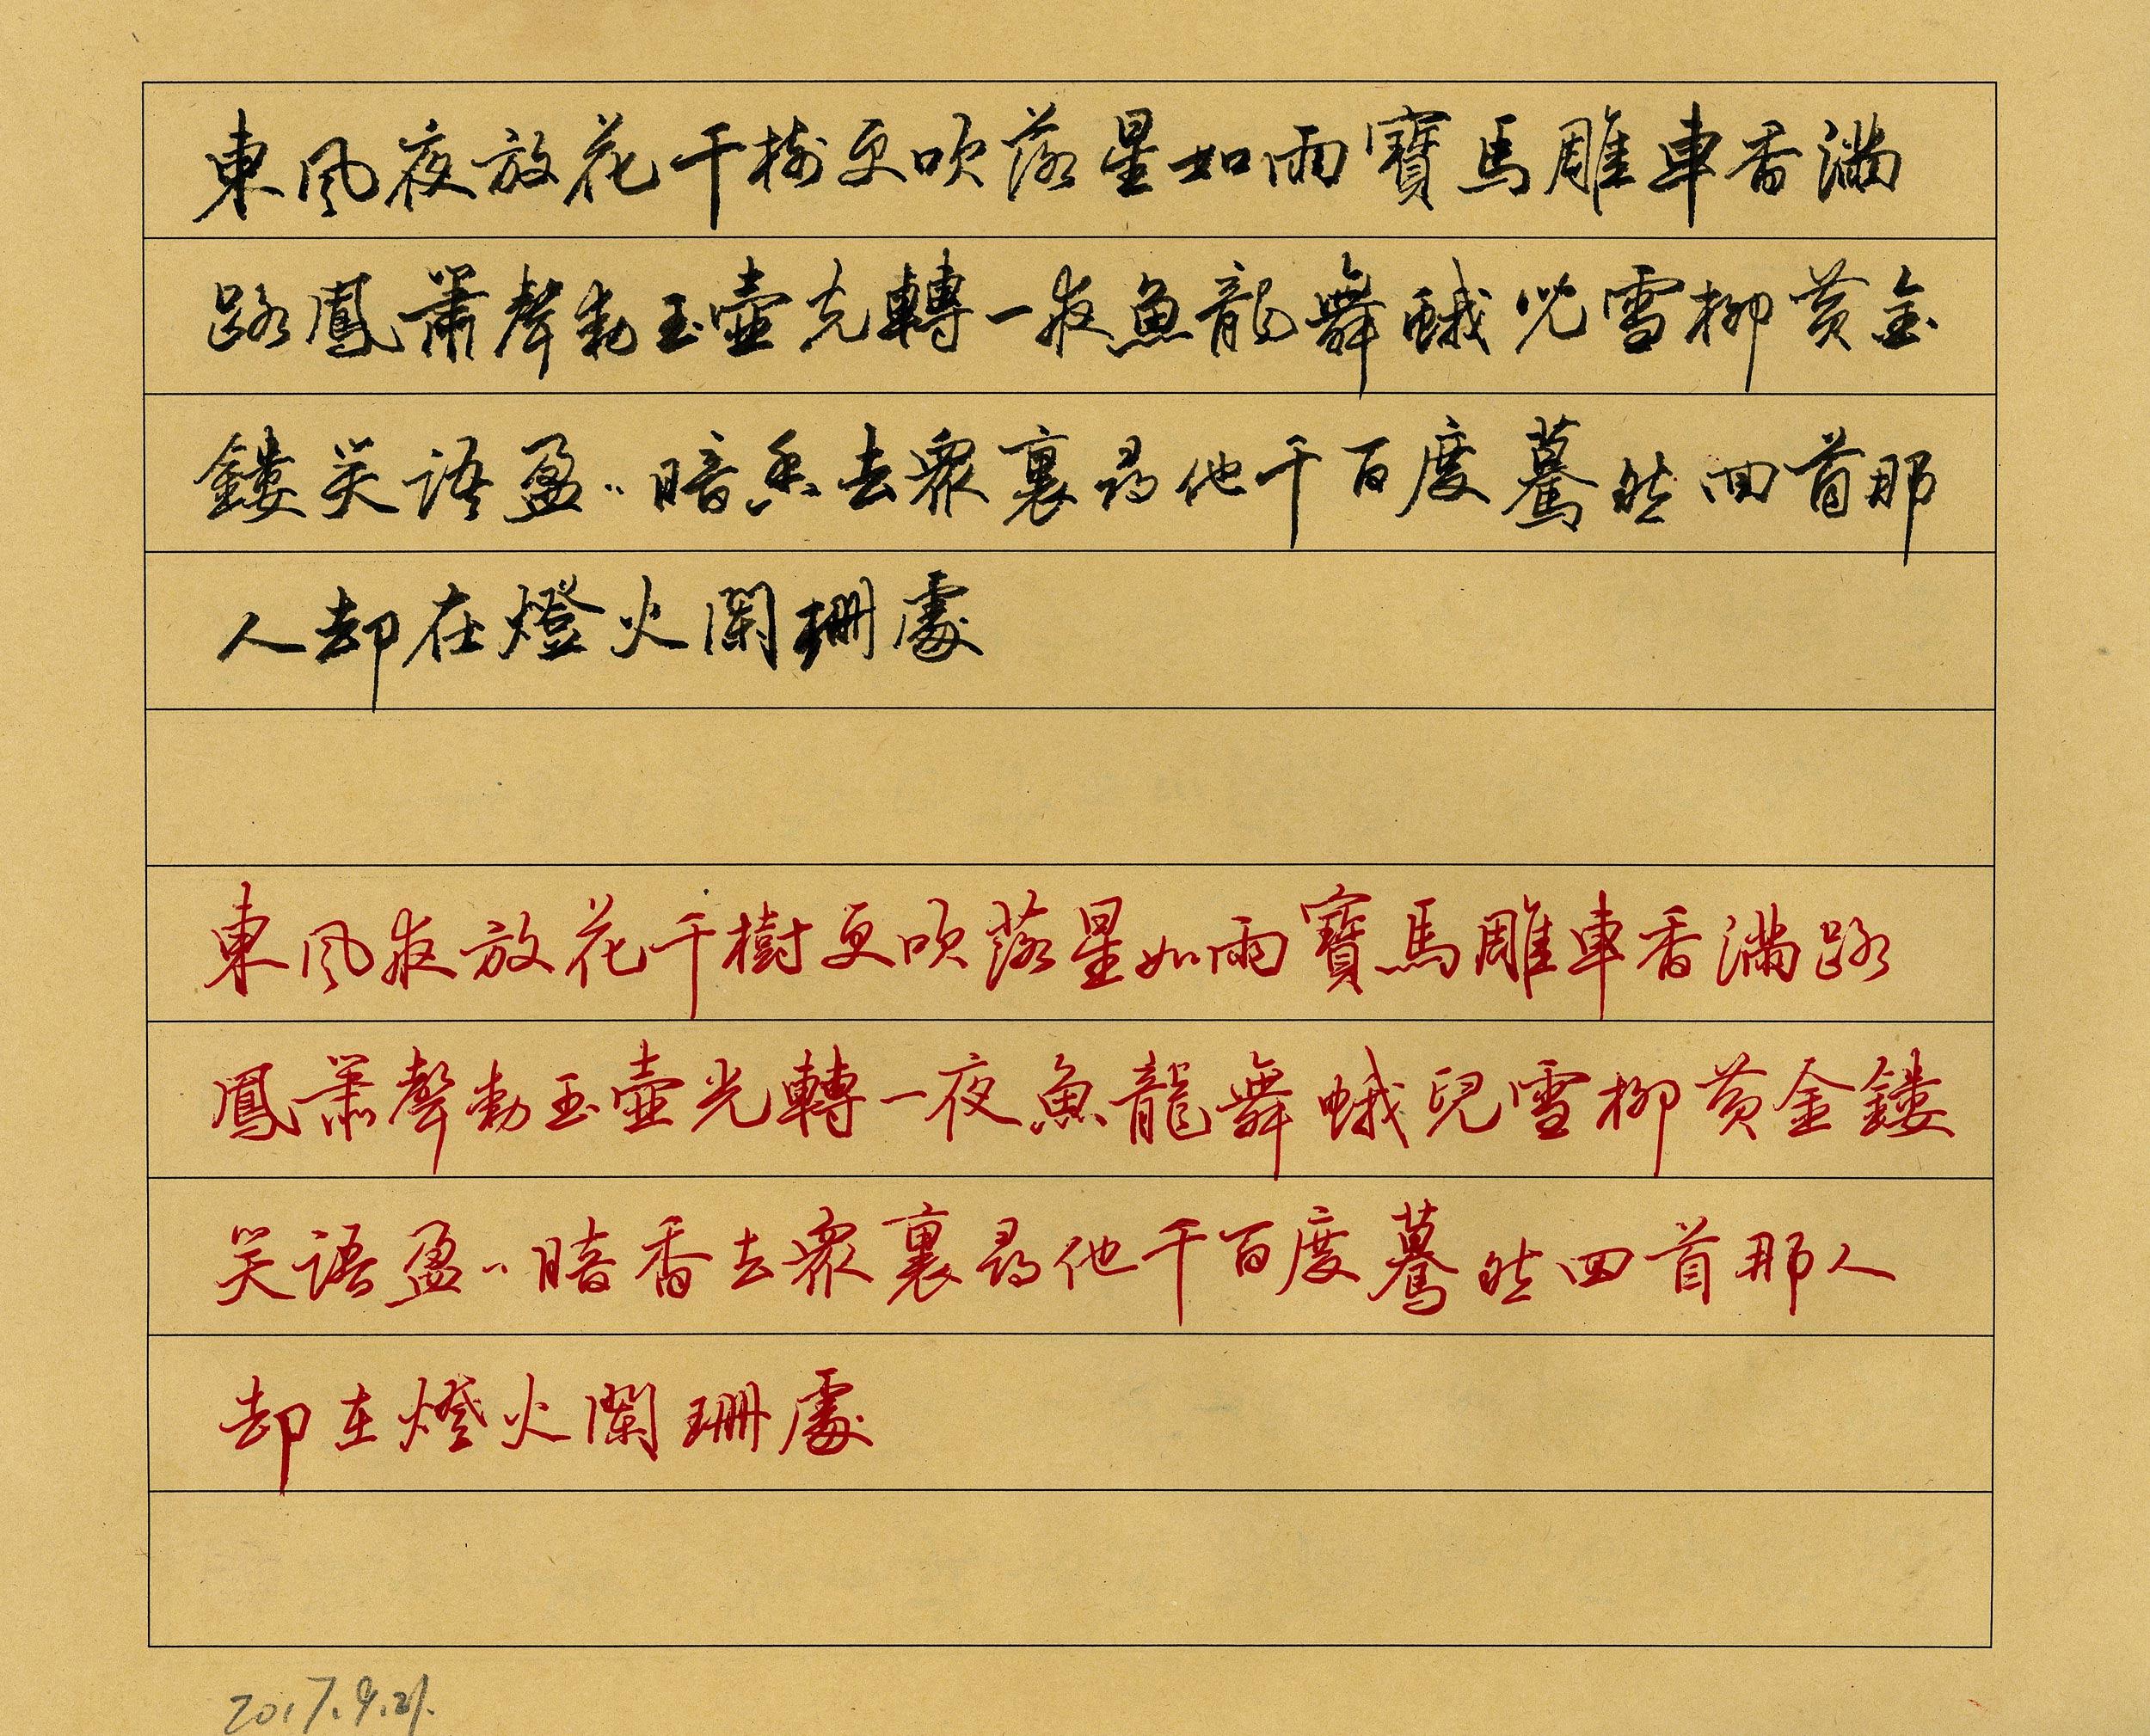 東風夜放花千樹更吹落星如雨寶馬雕車香滿
路鳳萧聲動玉壺光轉一夜魚龍舞蛾兒雪柳黄金
鏤笑語盈〻暗香去衆裏尋他千百度驀然回首那
人却在燈火闌珊處
東風夜放花千樹更吹落星如雨寶馬雕車香滿路
鳳萧聲動玉壺光轉一夜魚龍舞蛾兒雪柳黄金鏤
笑語盈〻暗香去衆裏尋他千百度驀然回首那人
却在燈火闌珊處
2017.9.21.